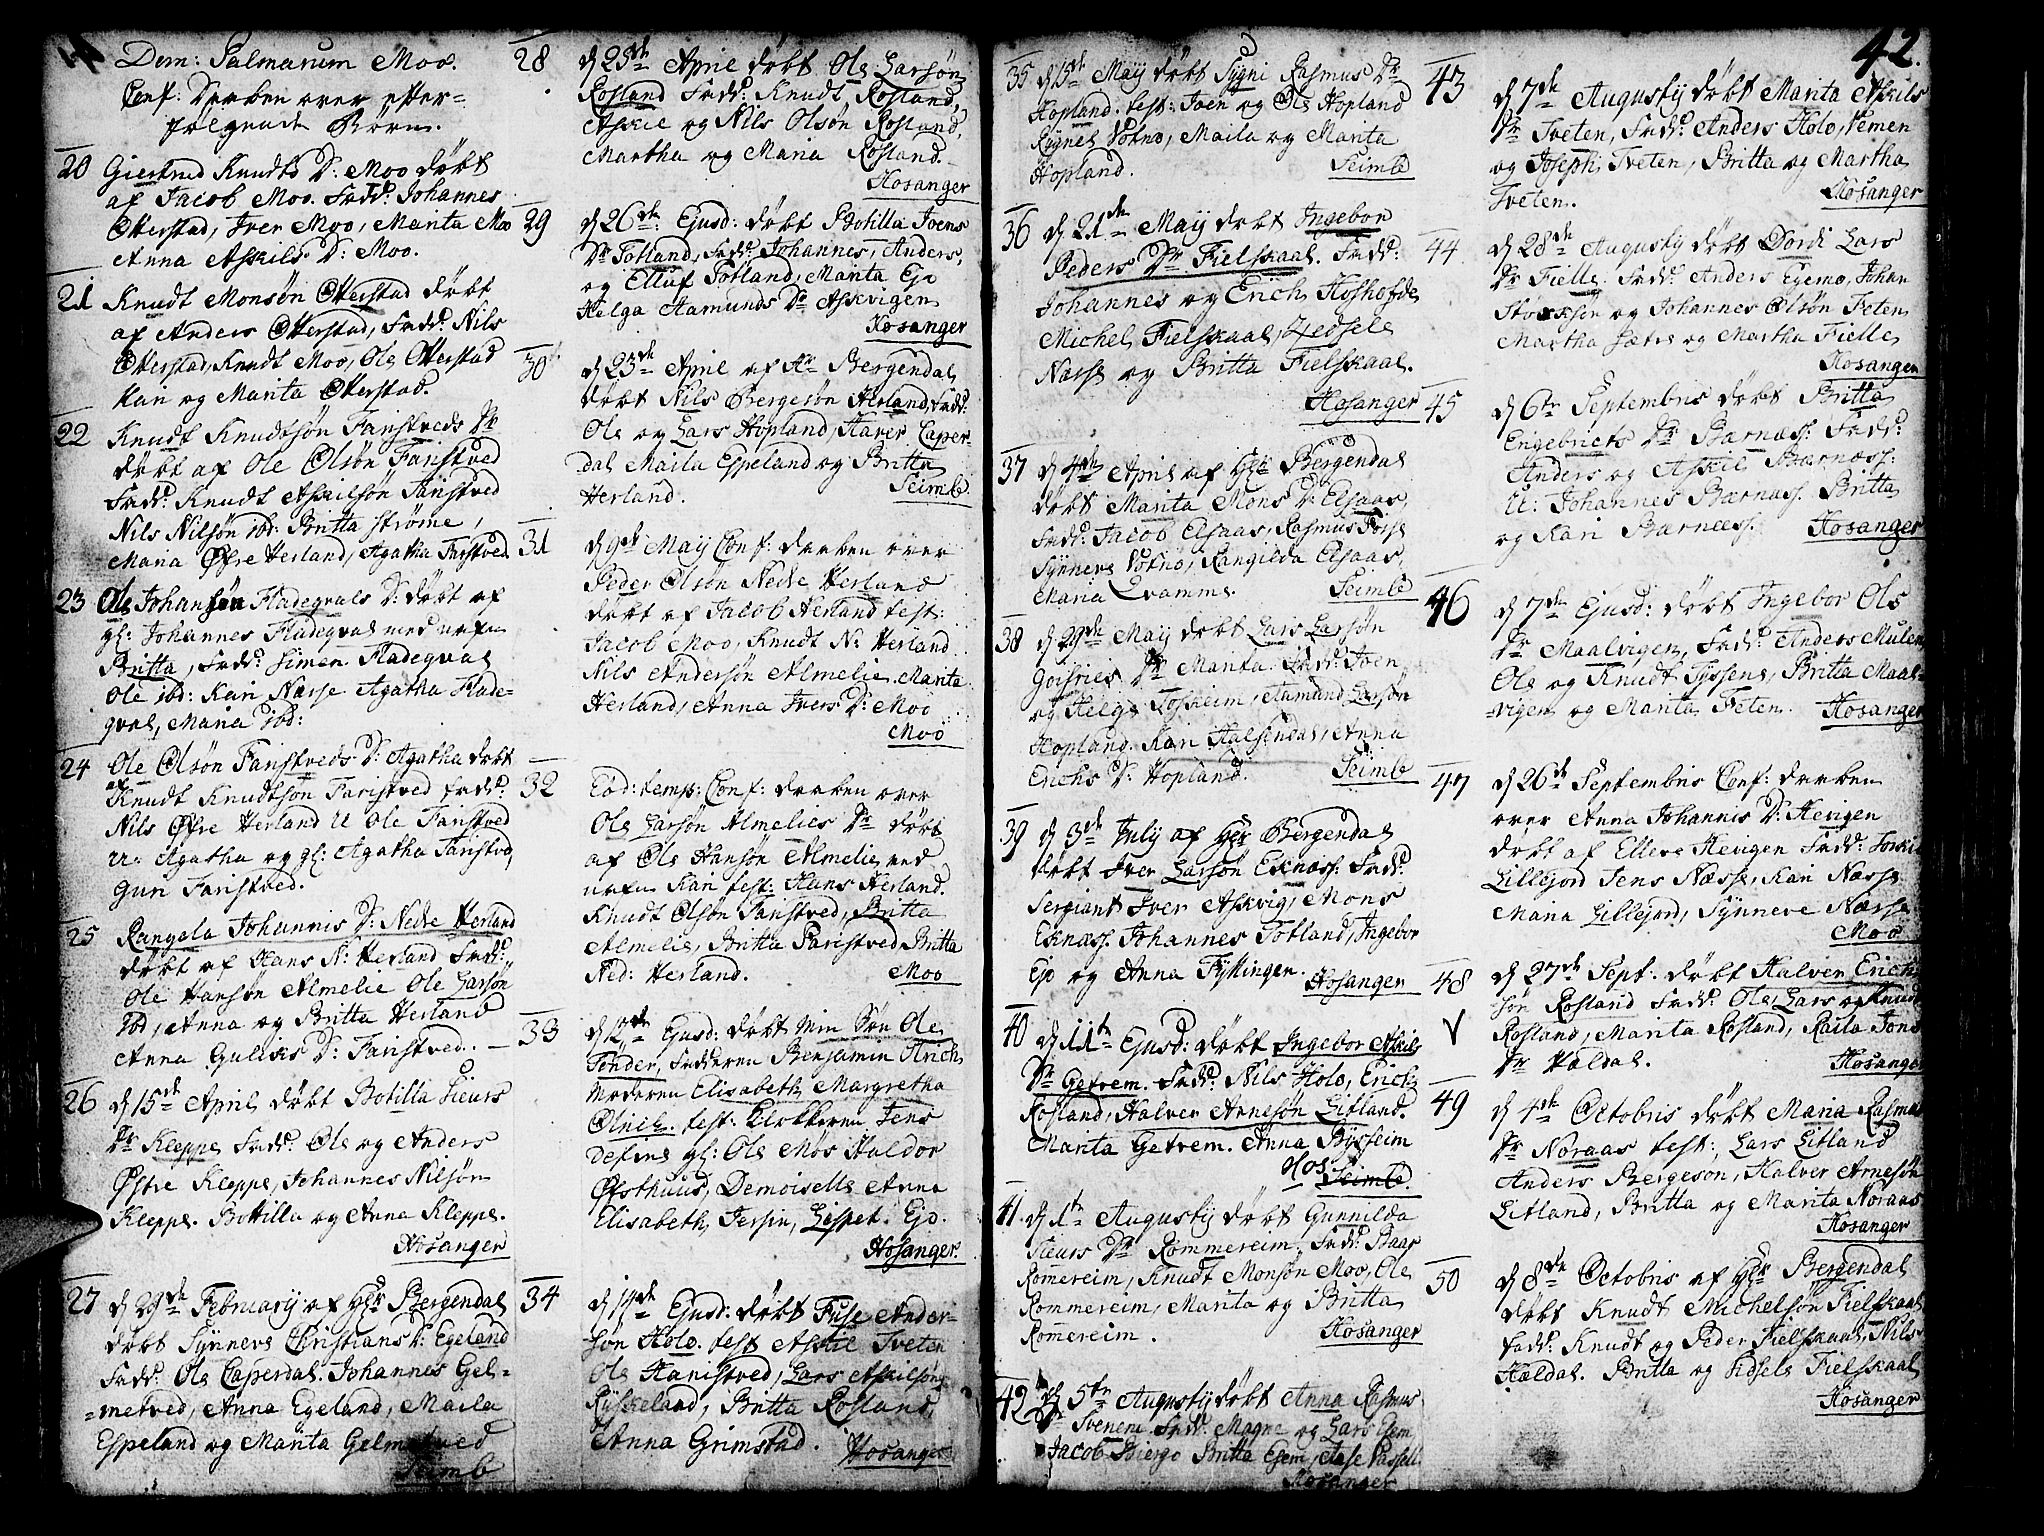 Dom: Palmarum Moo.
Conf: Daaben over efter-
følgende Børn.
20 Giertrud Knudts Dr: Moo døbt
af Jacob Moo. Fadd: Johannes
Otterstad, Iver Moo, Marita Moo
Anna Askils Dr: Moo.
21 Knudt Monsøn Otterstad døbt
af Anders Otterstad, Fadd: Nils
Otterstad, Knudt Moo, Ole Otterstad
Kari og Marita Otterstad.
22 Knudt Knudtsøn Faristveds Dr
døbt af Ole Olsøn Faristved
Fadd: Knudt Askilsøn Faristved
Nils Nilsøn ibd: Britta Strøme,
Maria Øfre Herland, Agatha Faristved
23 Ole Johansøn Fladeqvals Dr: døbt af
gl: Johannes Fladeqval med nafn
Britta, Fadd: Simen Fladeqval
Ole ibd: Kari Næsse Agatha Flade-
qval, Maria ibd:
24 Ole Olsøn Faristveds Dr: Agatha døbt
af Knudt Knudtsøn Faristved Fadd:
Nils Øfre Herland U: Ole Faristved
U: Agatha og gl: Agatha Faristved,
Guri Faristved.
25 Rangela Johannis Dr: Nedre Herland
døbt af Hans N: Herland Fadd:
Ole Hansøn Almelie Ole Larsøn
ibd, Anna og Britta Herland
Anna Guliks Dr: Faristved. –
26 d 15de April døbt Botilla Siurs
Dr Kleppe Fadd: Ole og Anders
Østre Kleppe, Johannes Nilsøn
Kleppe. Bottilla og Anna Kleppe.
Hosanger
27 d 29de Februarij af Hr Bergendal
døbt Synneve Christians Dr: Egeland
Fadd: Ole Caperdal. Johannes Gel-
-metved, Anna Egeland, Maila
Espeland og Marita Gelmetved
Seimb
28 d 25de April døbt Ole Larsøn
Rosland Fadd: Knudt Rosland,
Askil og Nils Olsøn Rosland,
Martha og Maria Rosland.
Hosanger
29 d 26de: Ejusd: døbt Botilla Joens
Dr Totland, Fadd: Johannes, Anders,
og Elluf Totland, Marita Ejo
Helga Aamunds Dr Askvigen
Hosanger
30 d 23de April af Hr Bergendal
døbt Nils Bergesøn Herland, Fadd:
Ole og Lars Hopland, Haver Caper-
dal Maila Espeland og Britta
Herland. Seimb
31 d 9de Maij Conf: daaben over
Peder Olsøn Nedre Herland
døbt af Jacob Herland test:
Jacob Moo, Knudt N: Herland
Nils Andersøn Almelie Marita
Herland, Anna Ivers Dr: Moo
Moo
32 Eod: temp: Conf: daaben over
Ole Larsøn Almelies Dr døbt
af Ole Hansøn Almelie ved
nafn Kari test: Hans Herland.
Knudt Olsøn Faristved, Britta
Almelie, Britta Faristved Britta
Ned: Herland. Moo
33 d 12te Ejusd: døbt Min Søn Ole
Tønder, Fadderen Benjamin Arich,
Moderen Elisabeth Margretha
Olrich. test: Klokkeren Jens
Defins gl: Ole Møs Haldor
Øfsthuus, Demoiselle Anna
Elisabeth Jersin, Lispet Ejo.
Hosanger.
34 d 14de Ejusd: døbt Fuse Ander-
søn Holo. test Askil Tveten
Ole Hanistved, Lars Askilsøn
Ryskeland, Britta Rosland,
Anna Grimstad. Hosanger
42.
35 d 15de Maij døbt Sygni Rasmus Dr
Hopland. test: Joen og Ole Hopland
Rognel Votno, Maila og Marita
Hopland. Seimb
36 d 21de Maij døbt Ingebor
Peders Dr Fielskaal. Fadd:
Johannes og Erich Hoshofde
Michel Fielskaal, Zedsele
Næsse og Britta Fielskaal.
Hosanger
37 d 4de April af Hr: Bergendal
døbt Marita Mons Dr: Elsaas,
Fadd: Jacob Elsaas, Rasmus Fosse
Synneve Votno, Rangilda Elsaas,
Maria Qvamme. Seimb
38 d 29de Maij døbt Lars Larsøn
Goisnes Dr Marita. Fadd: Joen
og Helge Loskeim, Aamund Larsøn
Hopland. Kari Halsendal, Anna
Erichs Dr: Hopland. Seimb
39 d 3de July af Hr Bergendal
døbt Iver Larsøn Eknæss: Fadd:
Sergiant Iver Askvig, Mons
Eknæss. Johannes Totland, Ingebor
Ejo og Anna Tyttingen.
Hosanger
40 d 11te Ejusd: døbt Ingebor Askils
Dr Getrem. Fadd: Nils Holo, Erich
Rosland, Halver Arnesøn Litland.
Marita Getrem. Anna Bysseim
Hos.
Seimb.
41. d 1te Augustij døbt Gunnilda
Siurs Dr Rommereim. Fadd: Baar
Romereim, Knudt Monsøn Moo, Ole
Rommereim, Marita og Britta
Romereim. Hosanger
42 d 5te Augustij døbt Anna Rasmus
Dr Ivenem. Fadd: Magne og Lars Ejem
Jacob Bierge Britta Ejem,
Hosanger
43 d 7de Augustij døbt Marita Askils
Dr Tveten, Fadd: Anders Holo, Vemen
og Joseph Tveten, Britta og Martha
Tveten. Hosanger
44 d 28de Augustij døbt Dordi Lars
Dr Fielle. Fadd: Anders Ejemo, Johan
og Johannes Olsøn Feten
Martha Sætre og Martha Fielle
Hosanger
45 d 6te Septembris døbt Britta
Engebricts Dr Bærnæss: Fadd:
Anders og Askil Bærnæss:
U: Johannes Bærnæss: Britta
og Kari Bærnæss. Hosanger
46 d 7de Ejusd: døbt Ingebor Ols
Dr Maalvigen, Fadd: Anders Mulen
Ole og Knudt Tyssens, Britta Maal-
-vigen og Marita Feten. Hosanger
47 d 26de Septembris Conf: daaben
over Anna Johannis Dr: Hevigen
døbt af Elleve Hevigen Fadd: Torkil
Lillejord Jens Næsse, Kari Næsse
Maria Lillejord, Synneve Næsse
Moo
48 d 27de Sept: døbt Halver Erich-
søn Rosland Fadd: Ole, Lars og Knudt
Rosland, Marita Rosland, Raila Jons
Dr Haldal. Hosanger
49 d 4de Octobris døbt Maria Rasmus
Dr Noraas test: Lars Litland
Anders Bergeson, Halver Arnesøn
Litland, Britta og Marita Noraas
Hosanger
50 d 8de Octobris af Hr Bergendal
døbt Knudt Michelsøn Fielskaal
Fadd: Knudt og Peder Fielskaal, Nils
Hældal. Britta og Zidsele Fielskaal
Hosanger